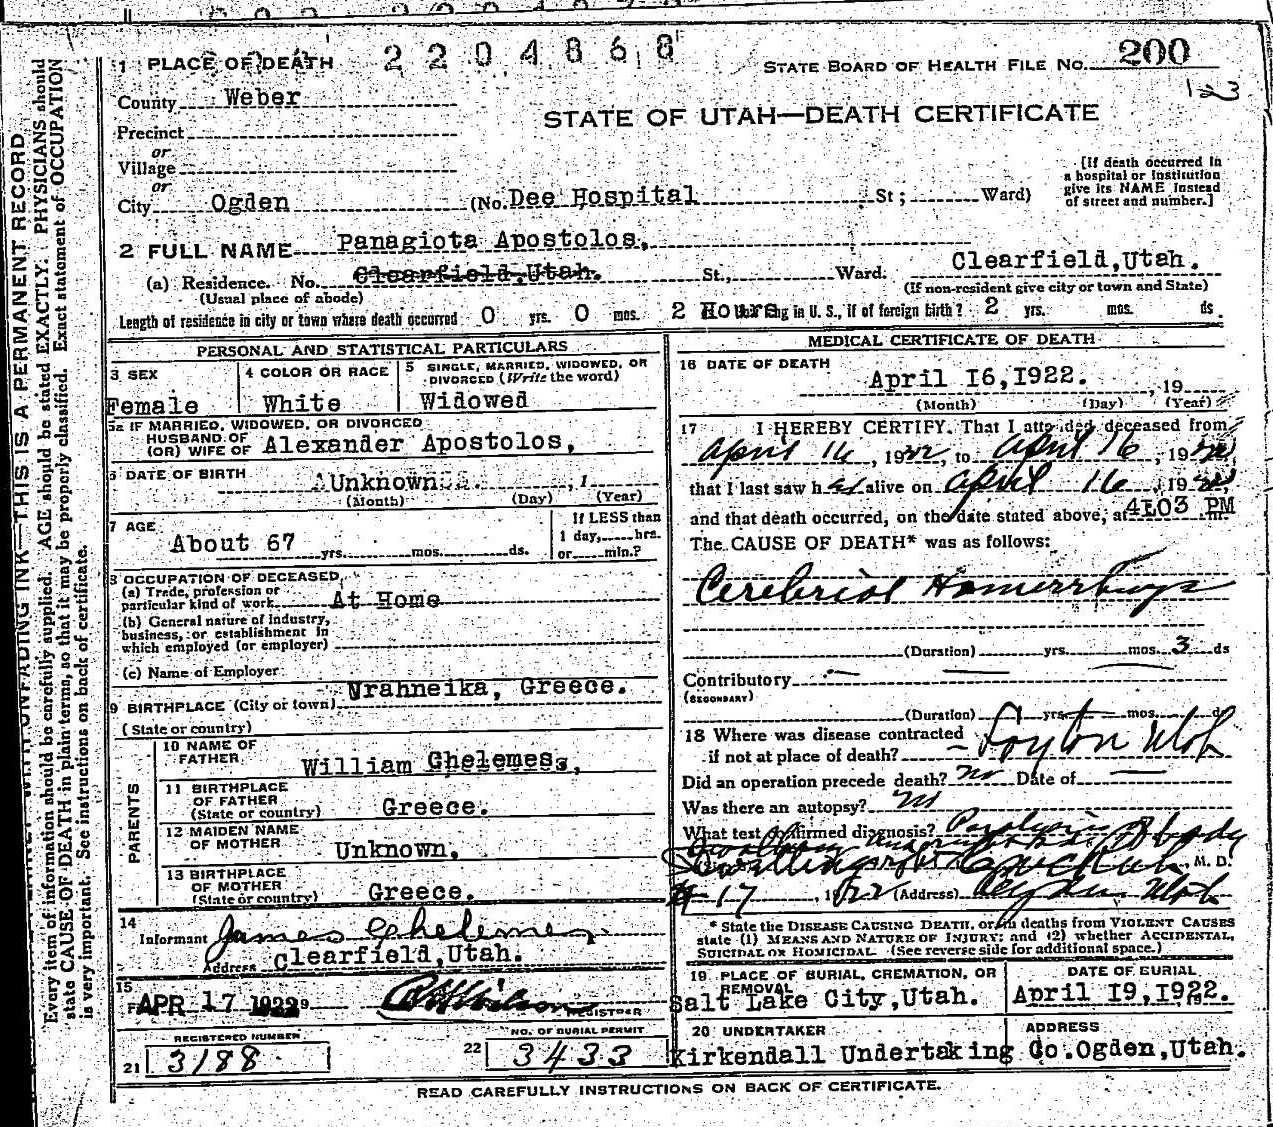 2204868
1 PLACE OF DEATH
STATE BOARD OF HEALTH FILE NO. 200
123
County Weber
STATE OF UTAH—DEATH CERTIFICATE
Precinct
or
Village
or
City Ogden (No. Dee Hospital St; Ward)
[If death occurred in
a hospital or institution
give its NAME instead
of street and number.]
2 FULL NAME Panagiota Apostolos,
(a) Residence. No. Clearfield,Utah. St., Ward. Clearfield,Utah.
(Usual place of abode) (If non-resident give city or town and State)
Length of residence in city or town where death occurred 0 yrs. 0 mos. 2 Hours in U. S., if of foreign birth? 2 yrs. mos. ds.
PERSONAL AND STATISTICAL PARTICULARS
3 SEX
Female
4 COLOR OR RACE
White
5 SINGLE, MARRIED, WIDOWED, OR
DIVORCED (Write the word)
Widowed
5a IF MARRIED, WIDOWED, OR DIVORCED
HUSBAND OF
(OR) WIFE OF Alexander Apostolos,
6 DATE OF BIRTH Unknown , 1
(Month) (Day) (Year)
7 AGE
About 67 yrs. mos. ds.
If LESS than
1 day, hrs.
or min.?
8 OCCUPATION OF DECEASED
(a) Trade, profession or
particular kind of work At Home
(b) General nature of industry,
business, or establishment in
which employed (or employer)
(c) Name of Employer
9 BIRTHPLACE (City or town) Vrahneika, Greece.
(State or country)
PARENTS
10 NAME OF
FATHER William Ghelemes,
11 BIRTHPLACE
OF FATHER
(State or country) Greece.
12 MAIDEN NAME
OF MOTHER Unknown.
13 BIRTHPLACE
OF MOTHER
(State or country) Greece.
14
Informant James Ghelemes
Address Clearfield,Utah.
15
APR 17 1922
REGISTRAR
REGISTERED NUMBER
21 3188
NO. OF BURIAL PERMIT
22 3433
MEDICAL CERTIFICATE OF DEATH
16 DATE OF DEATH
April 16,1922. , 19
(Month) (Day) (Year)
17 I HEREBY CERTIFY, That I attended deceased from
April 16, 1922, to April 16, 1922,
that I last saw her alive on April 16, 1922,
and that death occurred, on the date stated above, at 4:03 PM
The CAUSE OF DEATH* was as follows:
Cerebrial Hemorrhage
(Duration) yrs. mos. 3 ds
Contributory
(SECONDARY)
(Duration) yrs. mos. ds
18 Where was disease contracted
if not at place of death? Layton Utah
Did an operation precede death? no Date of
Was there an autopsy? no
What test confirmed diagnosis? Paralysis of body
, M. D.
4-17, 1922 (Address) Ogden Utah
* State the DISEASE CAUSING DEATH, or in deaths from VIOLENT CAUSES
state (1) MEANS AND NATURE OF INJURY; and (2) whether ACCIDENTAL,
SUICIDAL OR HOMICIDAL. (See reverse side for additional space.)
19 PLACE OF BURIAL, CREMATION, OR
REMOVAL
Salt Lake City,Utah.
DATE OF BURIAL
April 19,1922.
20 UNDERTAKER
Kirkendall Undertaking Co.
ADDRESS
Ogden,Utah.
READ CAREFULLY INSTRUCTIONS ON BACK OF CERTIFICATE.
UNFADING INK—THIS IS A PERMANENT RECORD
Every item of information should be carefully supplied. AGE should be stated EXACTLY. PHYSICIANS should
state CAUSE OF DEATH in plain terms, so that it may be properly classified. Exact statement of OCCUPATION
is very important. See instructions on back of certificate.